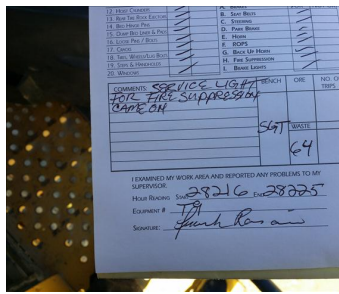 12. Hoist Cylinders
13. Box Tire Rock Ejectors
14. Bed Hinge Pins
15. Dump Bed Liner & Pads
16. Loose Pins / Bolts
17. Chocks
18. Tires, Wheels/Lug Bolts
19. Steps & Handholds
20. Windows
B. Seat Belts
C. Steering
D. Park Brake
E. Horn
F. ROPS
G. Back Up Horn
H. Fire Suppression
I. Brake Lights
COMMENTS: SERVICE LIGHT
FOR FIRE SUPPRESSION
CAME ON
BENCH
ORE
NO. OF
TRIPS
WASTE
64
I EXAMINED MY WORK AREA AND REPORTED ANY PROBLEMS TO MY
SUPERVISOR.
HOUR READING START 28216 END 28225
EQUIPMENT #
SIGNATURE: